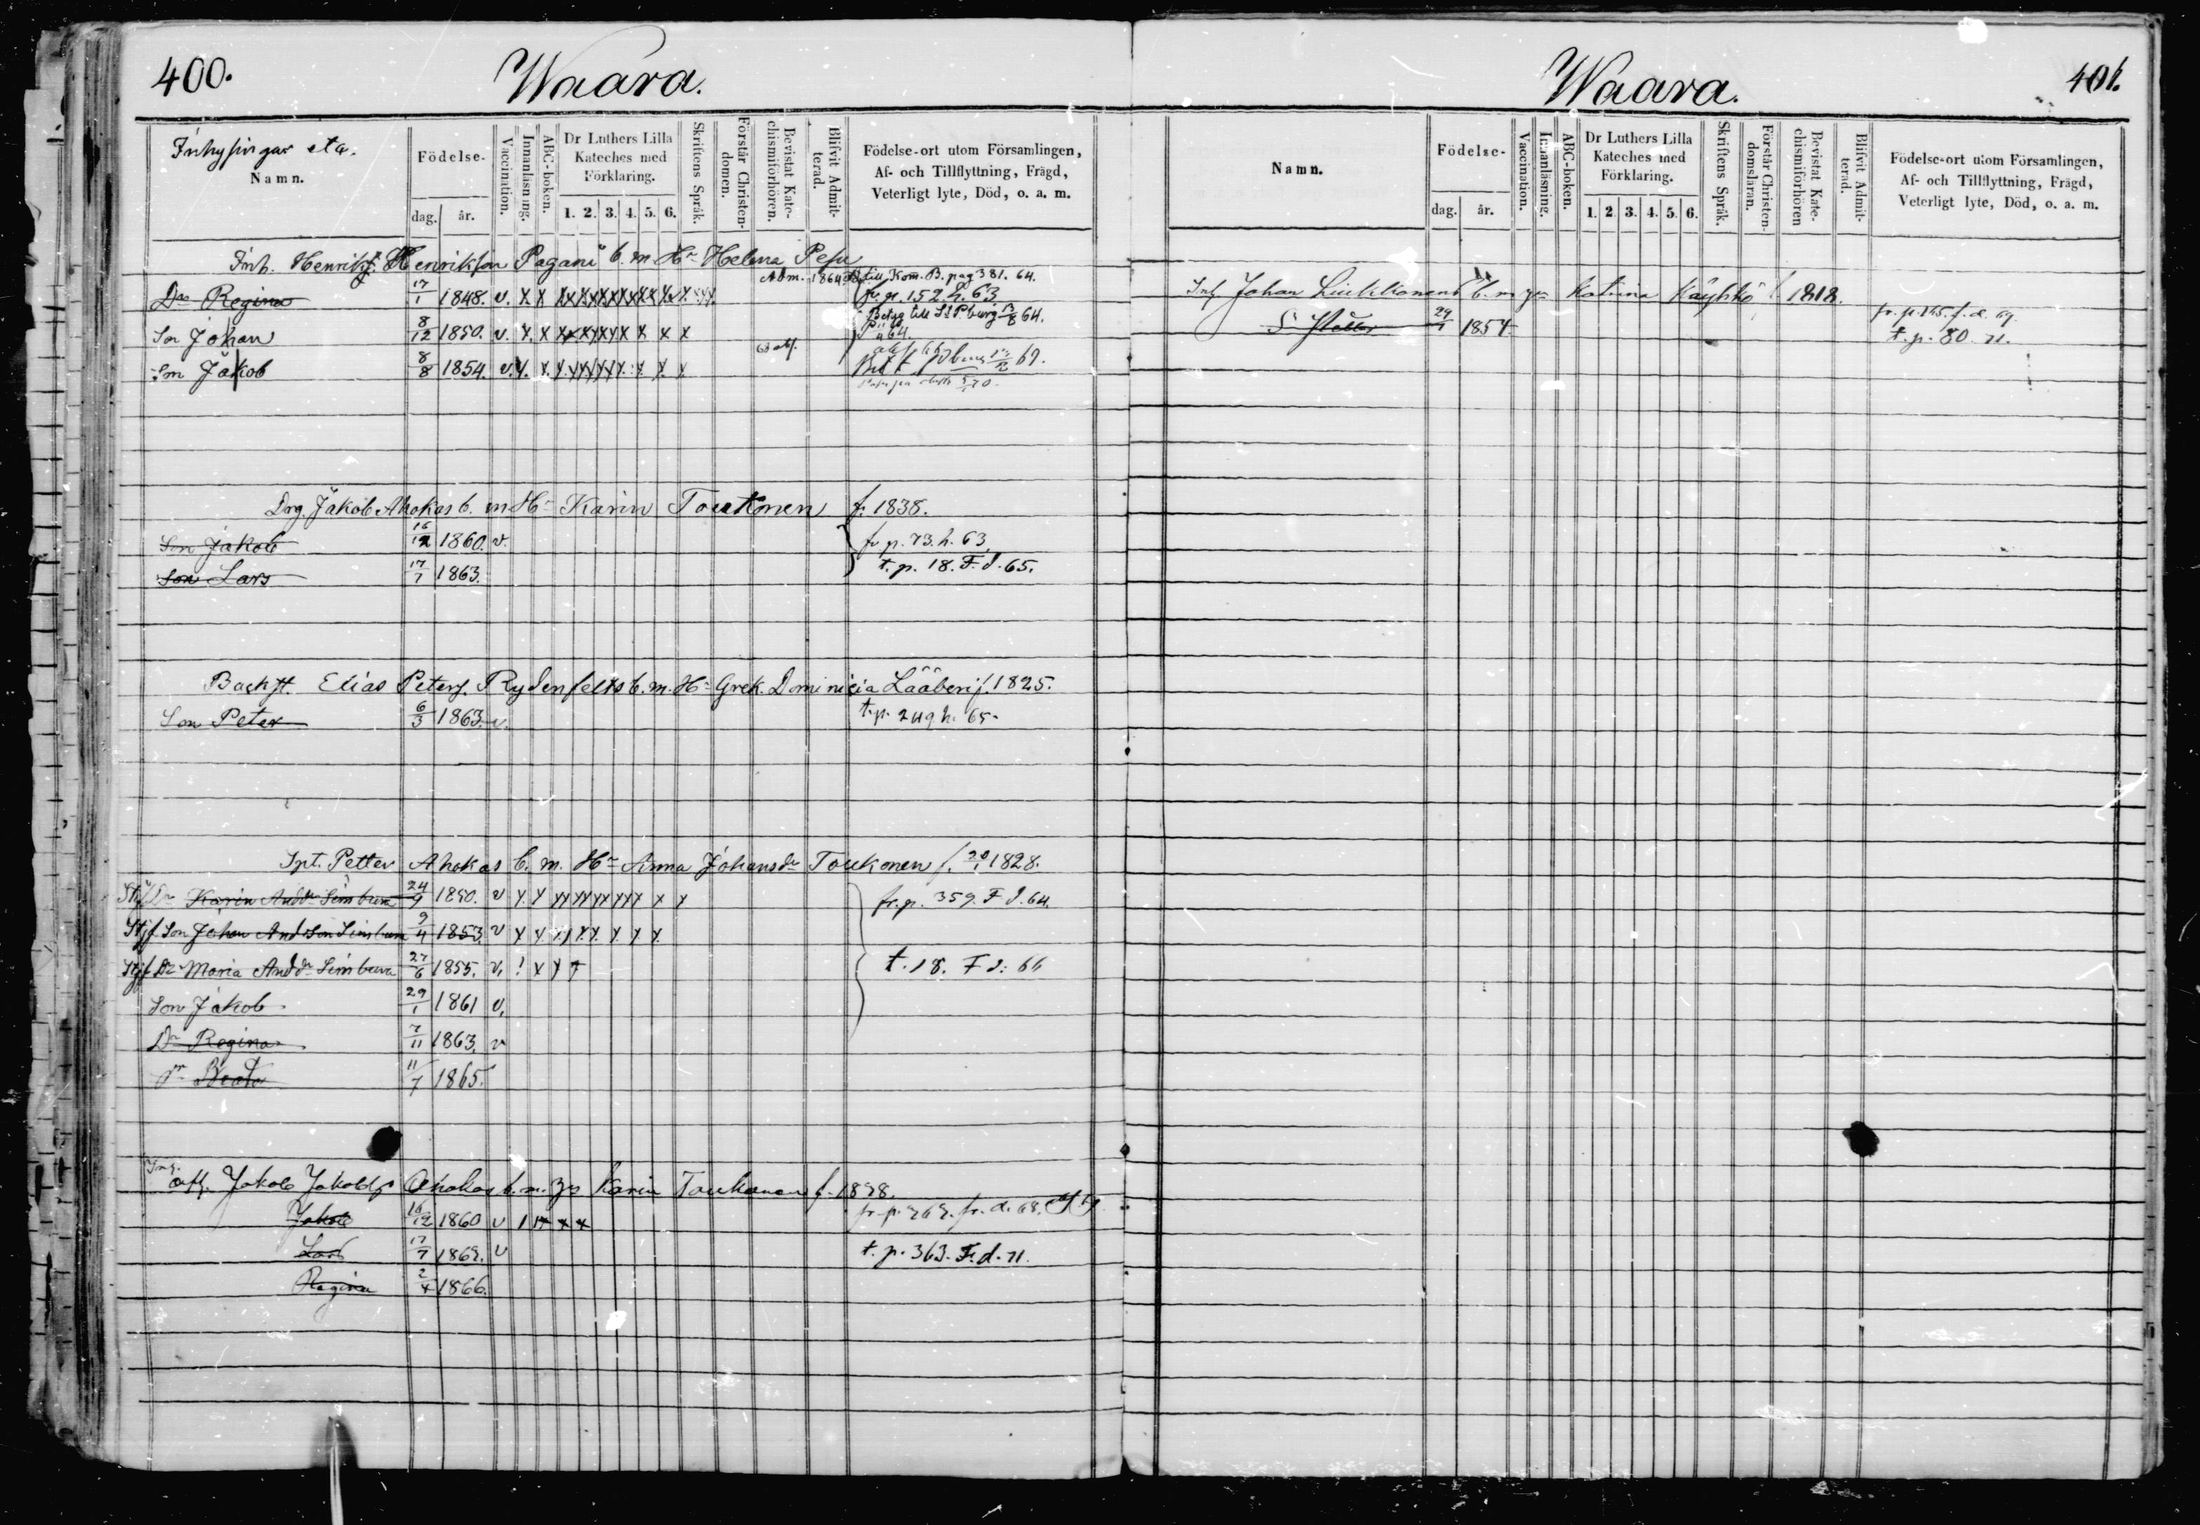 400.
Waara.
Inhysingar etc.
Namn.
Födelse-
dag. år.
Vaccination.
Innanläsning.
ABC-boken.
Dr Luthers Lilla
Kateches med
Förklaring.
1. 2. 3. 4. 5. 6.
Skriftens Språk.
Förstår Christen-
domen.
Bevistat Kate-
chismiförhören.
Blifvit Admit-
terad.
Födelse-ort utom Församlingen,
Af- och Tillflyttning, Frägd,
Veterligt lyte, Död, o. a. m.
Inh. Henrik Henriksson Pagani b. m. Hu Helena Pesu
Adm. 1864 till Kom. B. pag 381. 64.
Dr Regina 17/1 1848. v. x x x x x x x x x x x fr. p. 152 h. 63.
Betyg till St Pburg 64.
Son Johan 8/12 1850. v. x x x x x x x x x
Son Jakob 8/8 1854. v. x. x. x x x x x x x x 69.
Drg. Jakob Ahokas b. m Hu Karin Toukonen f. 1838.
Son Jakob 16/12 1860. v. fr p. 73. h. 63.
Son Lars 17/7 1863. t. p. 18. F. d. 65.
Backst. Elias Peters. Rydenfelts b. m. Hu Grek. Dominicia Lääberi f. 1825.
Son Peter 6/3 1863. v. t. p. 249 h. 65.
Spt. Petter Ahokas b. m. Hu Anna Johansdr Toukonen f. 20/1 1828.
Styf Dr Karin Anddr Simbura 24/9 1850. v x x x x x x x x x x fr. p. 359. F d. 64.
Styf Son Johan Andsson Simbura 9/4 1853. v x x x x x x x x
Styf Dr Maria Anddr Simbura 27/6 1855. v. ! x x t. 18. F d: 66
Son Jakob 29/1 1861 v.
Dr Regina 7/11 1863. v
Dr Beata 11/7 1865.
Jakob Jakobs Ahokas b. m. Karin Toukonen f. 1838.
Jakob 16/12 1860 v x x
Lars 17/7 1863. v t. p. 363. F. d. 71.
Regina 2/4 1866.
Waara.
401.
Namn.
Födelse-
dag. år.
Vaccination.
Innanläsning.
ABC-boken.
Dr Luthers Lilla
Kateches med
Förklaring.
1. 2. 3. 4. 5. 6.
Skriftens Språk.
Förstår Christen-
domsläran.
Bevistat Kate-
chismiförhören
Blifvit Admit-
terad.
Födelse-ort utom Församlingen,
Af- och Tillflyttning, Frägd,
Veterligt lyte, Död, o. a. m.
Inh Johan Liukkonens b. m Katrina Käyhkö f. 1818.
S Petter 29/1 1854 fr. p. 145. f. d. 69
t. p. 80. 71.